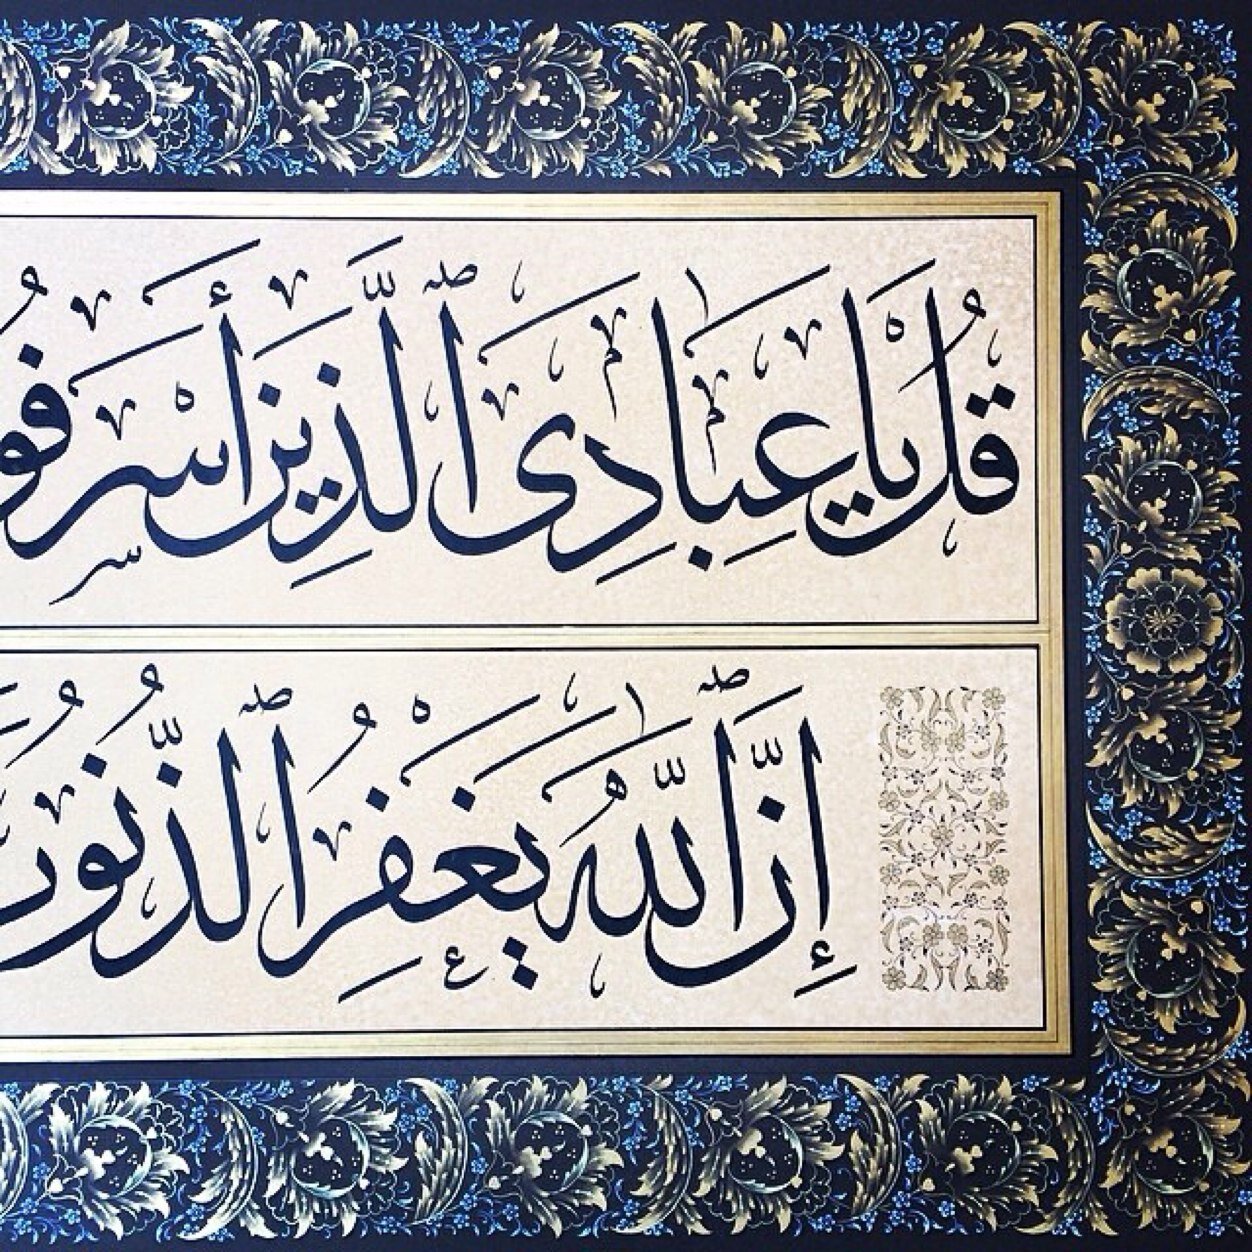 قُلْ يَا عِبَادِىَ ٱلَّذِينَ أَسْرَفُو
إِنَّ ٱللَّهَ يَغْفِرُ ٱلذُّنُوبَ